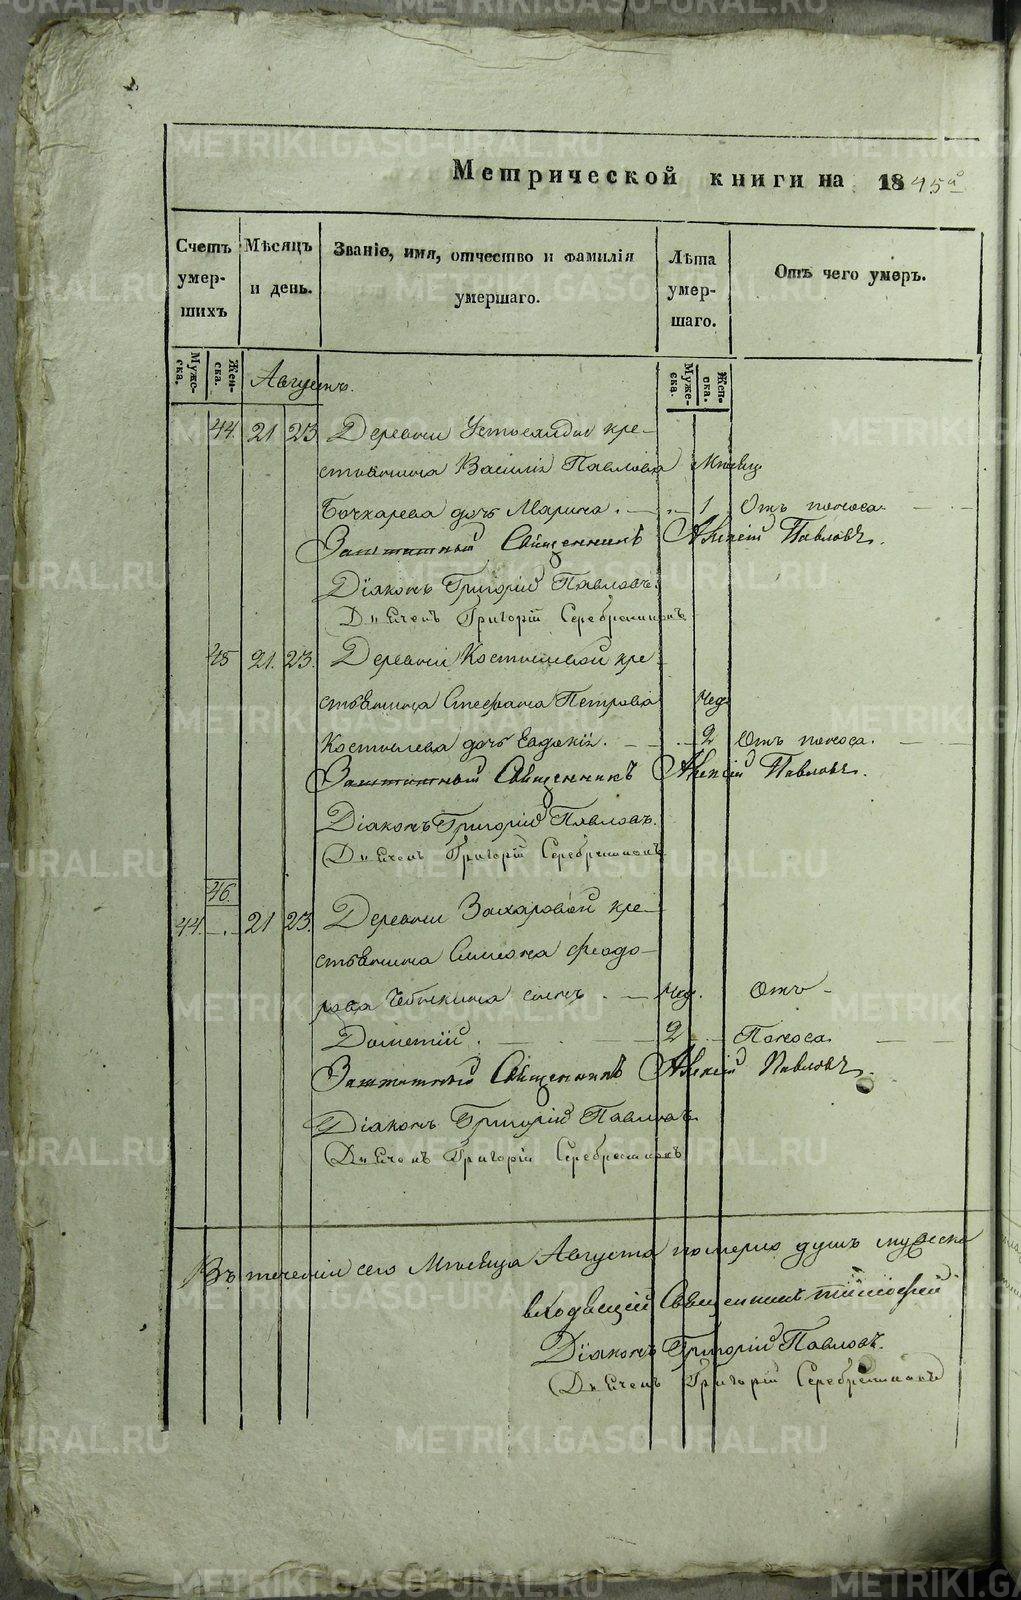 Метрической книги на 1845 й
Счетъ умер- шихъ
Мѣсяцъ и день.
Званіе, имя, отчество и фамилія умершаго.
Лѣта умер- шаго.
Отъ чего умеръ.
Муже- ска.
Жен- ска.
Августъ.
Муже- ска.
Жен- ска.
44. 21 23 Деревни кре-
стьянина Василія Павлова Мѣсяц
Бочкарева дочь Марина. 1 Отъ поноса.
Заштатный Священникъ Алексій Павловъ.
Діаконъ Григорій Павловъ.
Дьячекъ Григорій Серебренниковъ
45 21. 23. Деревни Костылевой кре-
стьянина Стефана Петрова Нед.
Костылева дочь Евдокія. 2 Отъ поноса.
Заштатный Священникъ Алексій Павловъ.
Діаконъ Григорій Павловъ.
Дьячекъ Григорій Серебренниковъ
46.
44. 21 23. Деревни Захаровой кре-
стьянина Симеона Феодо-
рова сынъ Нед. Отъ
Дометій. 2 Поноса.
Заштатный Священникъ Алексій Павловъ.
Діаконъ Григорій Павловъ.
Дьячекъ Григорій Серебренниковъ
Въ теченіи сего Мѣсяца Августа померло душъ мужеска
Священникъ Тимофей
Діаконъ Григорій Павловъ.
Дьячекъ Григорій Серебренниковъ
METRIKI.GASO-URAL.RU